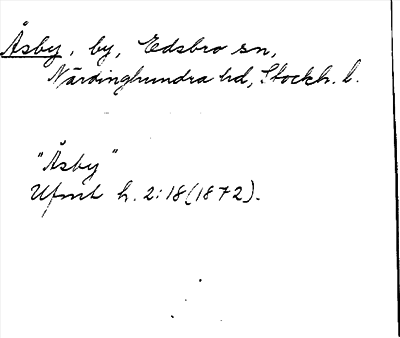 Åsby, by, Edsbro sn,
Närdinghundra hd, Stockh. l.
"Åsby"
Ufmt h. 2:18 (1872).